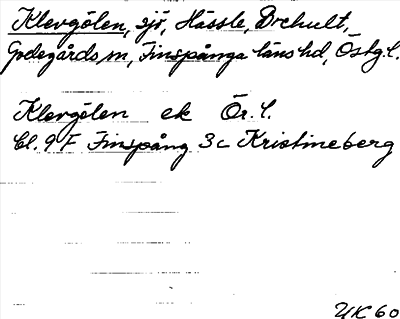 Klevgölen, sjö, Hässle, Brehult,
Godegårds sn, Finspånga läns hd, Östg. l.
Klevgölen ek Ör. l.
bl. 9 F Finspång 3c Kristineberg
UK 60